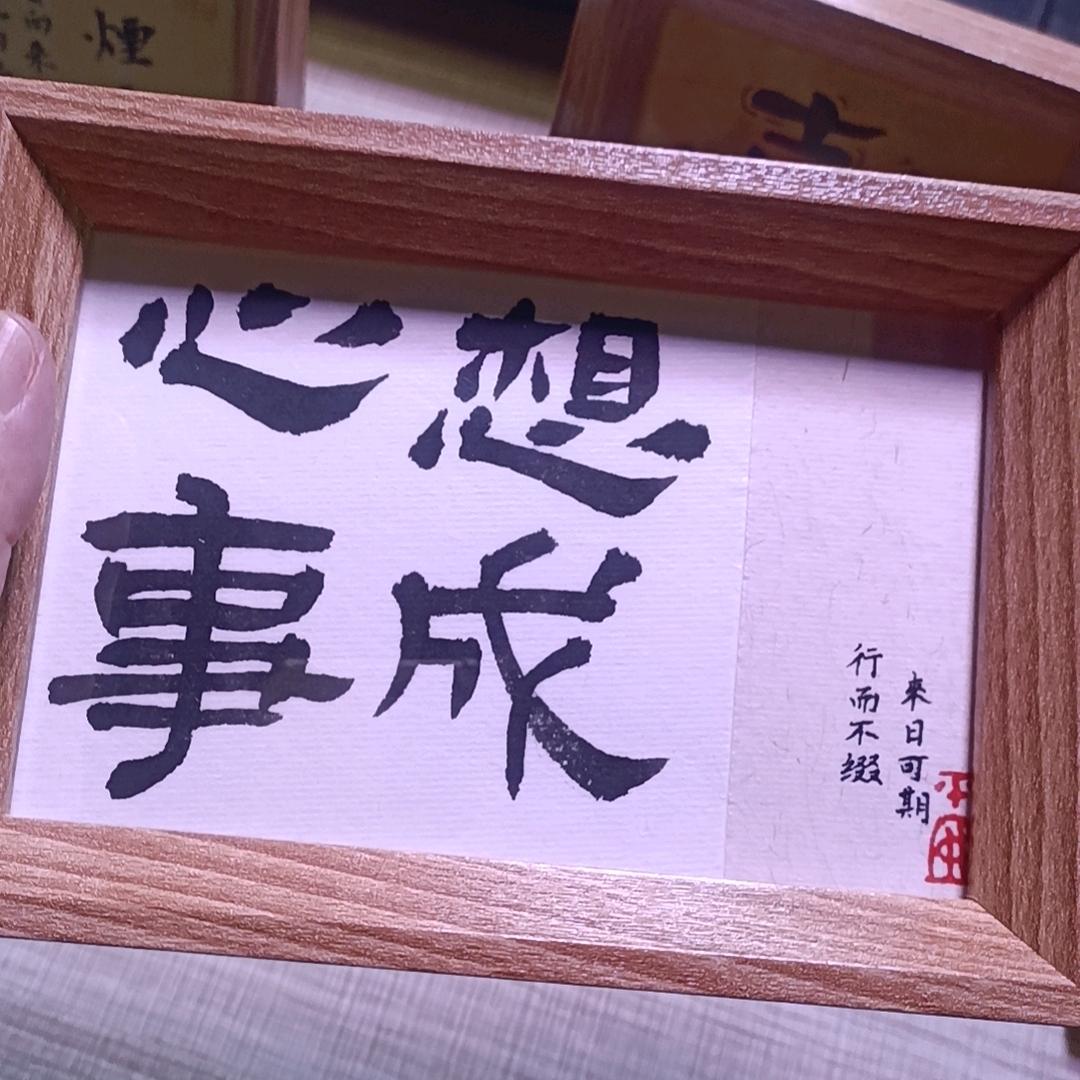 心想
事成
來日可期
行而不缀
煙
而来